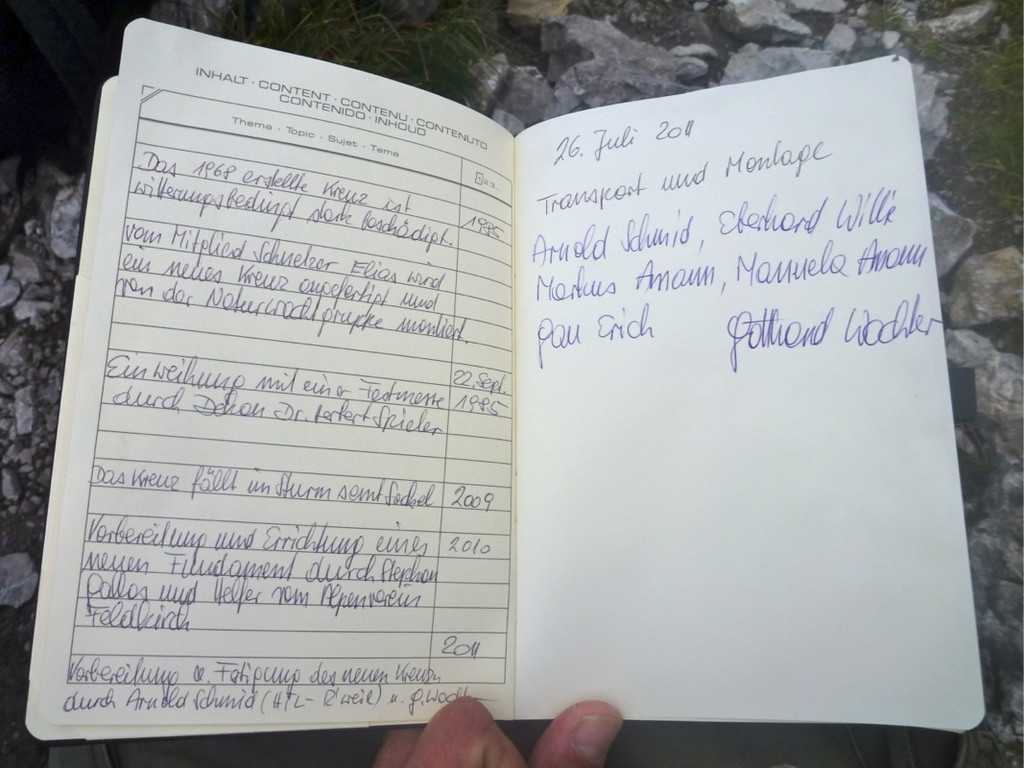 INHALT · CONTENT · CONTENU · CONTENUTO
CONTENIDO · INHOUD
Thema · Topic · Sujet · Tema
Das 1968 erstellte Kreuz ist
witterungsbedingt stark beschädigt. 1985
vom Mitglied Schnetzer Elias wird
ein neues Kreuz angefertigt und
von der Naturwachtgruppe montiert.
22. Sept.
Einweihung mit einer Festmesse 1985
durch Dekan Dr. Herbert Spieler
Das Kreuz fällt im Sturm samt Sockel 2009
Vorbereitung und Errichtung eines 2010
neuen Fundament durch Stephan
und Helfer vom Alpenverein
Feldkirch
2011
Vorbereitung u. Fertigung des neuen Kreuzes
durch Arnold Schmid (HTL - R'weil) u. G. Wacht
26. Juli 2011
Transport und Montage
Arnold Schmid, Eberhard Willi
Markus Amann, Manuela Amann
Gau Erich Gotthard Wachter